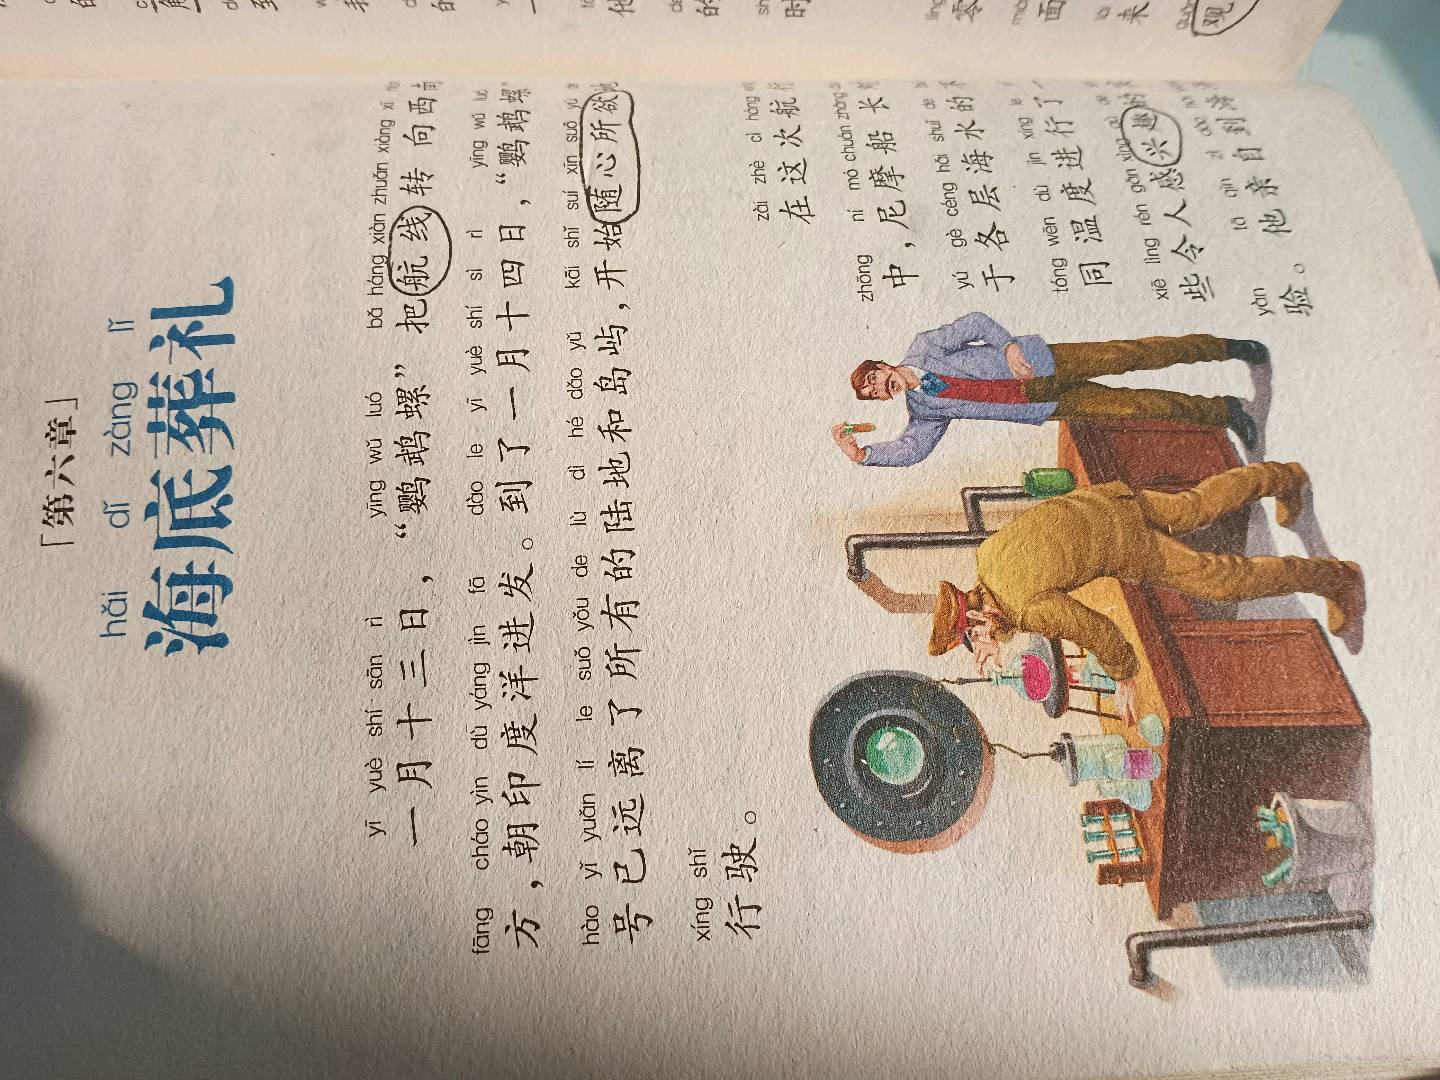 「第六章」
hǎi dǐ zàng lǐ
海底葬礼
yī yuè shí sān rì yīng wǔ luó bǎ háng xiàn zhuǎn xiàng xī
一月十三日，“鹦鹉螺”把航线转向西南
fāng cháo yìn dù yáng jìn fā dào le yī yuè shí sì rì yīng wǔ luó
方，朝印度洋进发。到了一月十四日，“鹦鹉螺”
hào yǐ yuǎn lí le suǒ yǒu de lù dì hé dǎo yǔ kāi shǐ suí xīn suǒ yù
号已远离了所有的陆地和岛屿，开始随心所欲
xíng shǐ
行驶。
zài zhè cì háng
在这次航
zhōng ní mó chuán zhǎng
中，尼摩船长
yú gè céng hǎi shuǐ de
于各层海水的
tóng wēn dù jìn xíng le
同温度进行了
xiē lìng rén gǎn xìng qù de
些令人感兴趣的
tā qīn zì dào
他亲自到
yàn
验。
到
的
他
的
时
líng
零
面
来
观